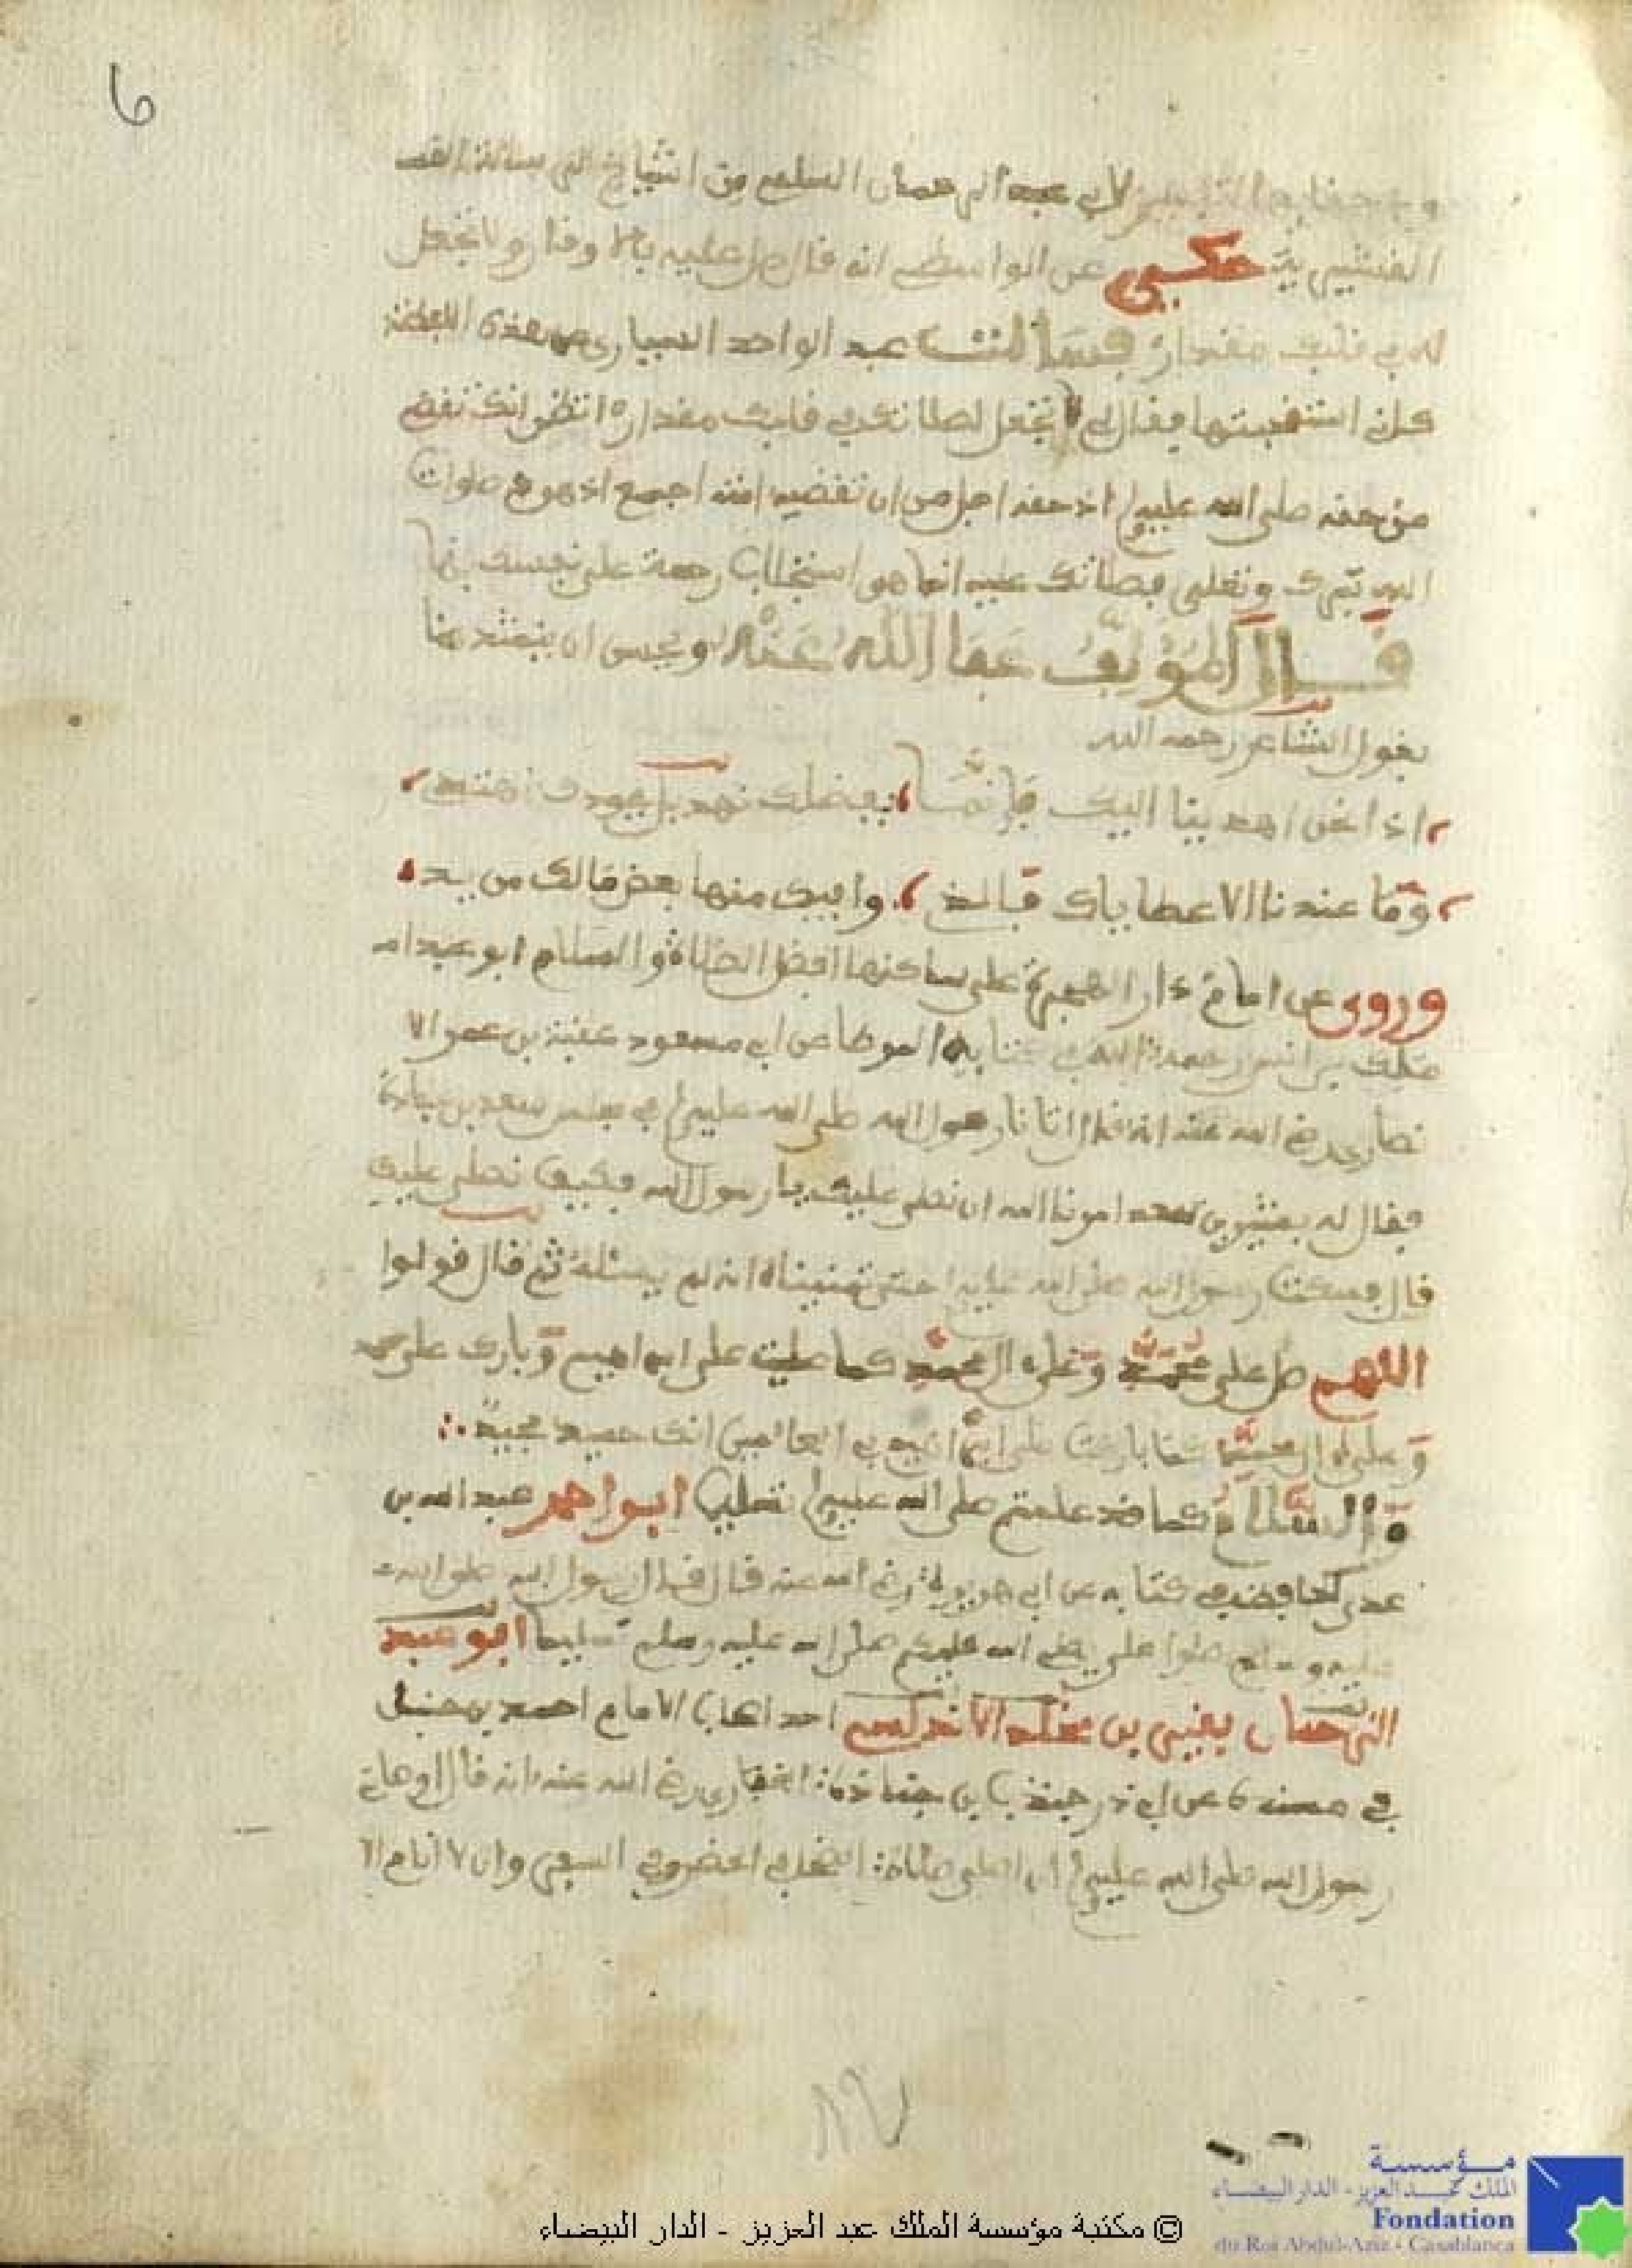 6
لابي عبد الرحمان السلمي من
حكى عن الواسطي انه قال صل عليه بالاوقار ولا تجعل
له في قلبك مقدار فسالت عبد الواحد السياري عن هذه اللفظة
كان استقبحتها فقال لي لا تجعل لصلاتك في قلبك مقداره انتظن انك تقضي
من حقه صلى الله عليه وسلم اذ حقه اجل من ان تقضيه امته اجمع اذ هو في صلوات
الله تبرك وتعلى فصلاتك عليه انما هو استجلاب رحمة على نفسك بها
قال المؤلف عفا الله عنه ويحسن ان ينشد هنا
يقول الشاعر رحمه الله
اذا نحن اهدينا اليك فانما بفضلك نهد بل بجودك نهتد
وما عندنا الا عطاياك قبالذ وافيك منها بعض مالك من يد
وروى عن امام دار الهجرة على ساكنها افضل الصلاة والسلام ابو عبد الله
ملك بن انس رحمه الله في كتابه الموطا عن ابي مسعود عقبة بن عمر الا
نصاري رضي الله عنه انه قال اتانا رسول الله صلى الله عليه وسلم في مجلس سعد بن عبادة
فقال له بشير بن سعد امرنا الله ان نصلي عليك يا رسول الله فكيف نصلي عليك
قال فسكت رسول الله صلى الله عليه وسلم حتى تمنيناه انه لم يسئله ثم قال قولوا
اللهم صل على محمد وعلى ال محمد كما صليت على ابراهيم وبارك على محمد
وعلى ال محمد كما باركت على ابراهيم في العالمين انك حميد مجيد
والسلام كما قد علمتم صلى الله عليه وسلم تسليما ابو احمد عبد الله بن
عدي الحافظ في كتابه عن ابي هريرة رضي الله عنه قال قال رسول الله صلى الله
عليه وسلم صلوا علي يصلي الله عليكم صلى الله عليه وسلم تسليما ابو عبد
الرحمان بقي بن مخلد الاندلسي احد اصحاب الامام احمد بن حنبل
في مسنده عن ابي ذر جندب بن جنادة الغفاري رضي الله عنه انه قال اوصاني
رسول الله صلى الله عليه وسلم ان اصلي صلاة الضحى في الحضر وفي السفر وان لا انام الا
© مكتبة مؤسسة الملك عبد العزيز - الدار البيضاء
مؤسسة
الملك عبد العزيز - الدار البيضاء
Fondation
du Roi Abdul-Aziz - Casablanca